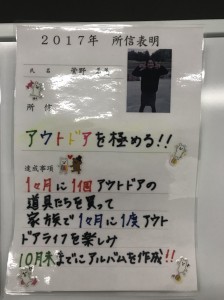 2017年 所信表明
氏名 菅野
所
アウトドアを極める!!
達成事項
1ヶ月に1個アウトドアの
道具たちを買って
家族で1ヶ月に1度アウト
ドアライフを楽しみ
10月末までにアルバムを作成!!